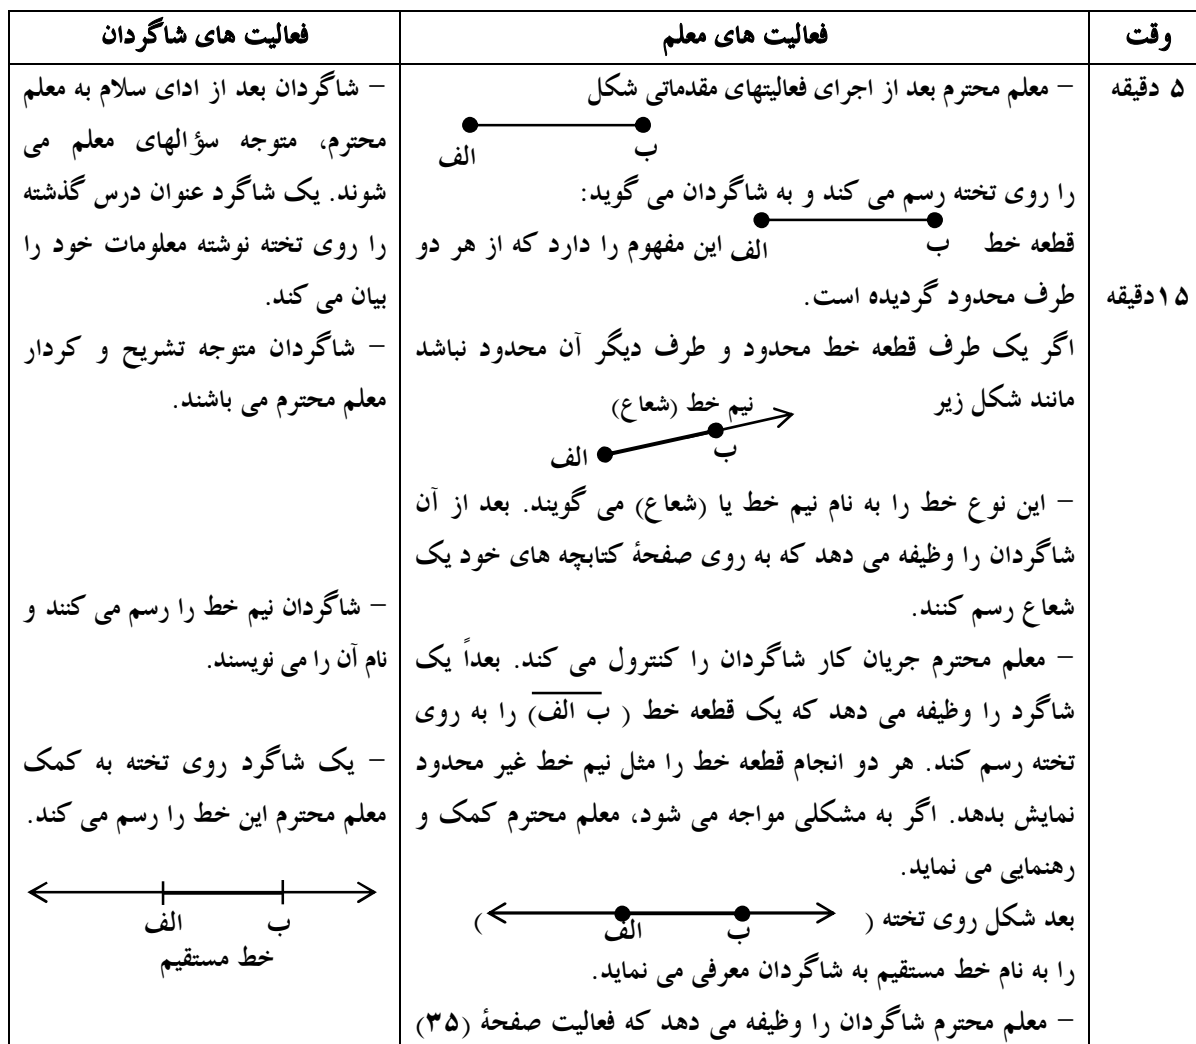 وقت
فعالیت های معلم
فعالیت های شاگردان
۵ دقیقه
۱۵دقیقه
– معلم محترم بعد از اجرای فعالیتهای مقدماتی شکل
ب
الف
را روی تخته رسم می کند و به شاگردان می گوید:
قطعه خط ب الف این مفهوم را دارد که از هر دو
طرف محدود گردیده است.
اگر یک طرف قطعه خط محدود و طرف دیگر آن محدود نباشد
مانند شکل زیر
نیم خط (شعاع)
ب
الف
– این نوع خط را به نام نیم خط یا (شعاع) می گویند. بعد از آن
شاگردان را وظیفه می دهد که به روی صفحهٔ کتابچه های خود یک
شعاع رسم کنند.
– معلم محترم جریان کار شاگردان را کنترول می کند. بعداً یک
شاگرد را وظیفه می دهد که یک قطعه خط ( ب الف) را به روی
تخته رسم کند. هر دو انجام قطعه خط را مثل نیم خط غیر محدود
نمایش بدهد. اگر به مشکلی مواجه می شود، معلم محترم کمک و
رهنمایی می نماید.
بعد شکل روی تخته ( ب الف )
را به نام خط مستقیم به شاگردان معرفی می نماید.
– معلم محترم شاگردان را وظیفه می دهد که فعالیت صفحهٔ (۳۵)
– شاگردان بعد از ادای سلام به معلم
محترم، متوجه سؤالهای معلم می
شوند. یک شاگرد عنوان درس گذشته
را روی تخته نوشته معلومات خود را
بیان می کند.
– شاگردان متوجه تشریح و کردار
معلم محترم می باشند.
– شاگردان نیم خط را رسم می کنند و
نام آن را می نویسند.
– یک شاگرد روی تخته به کمک
معلم محترم این خط را رسم می کند.
ب الف
خط مستقیم